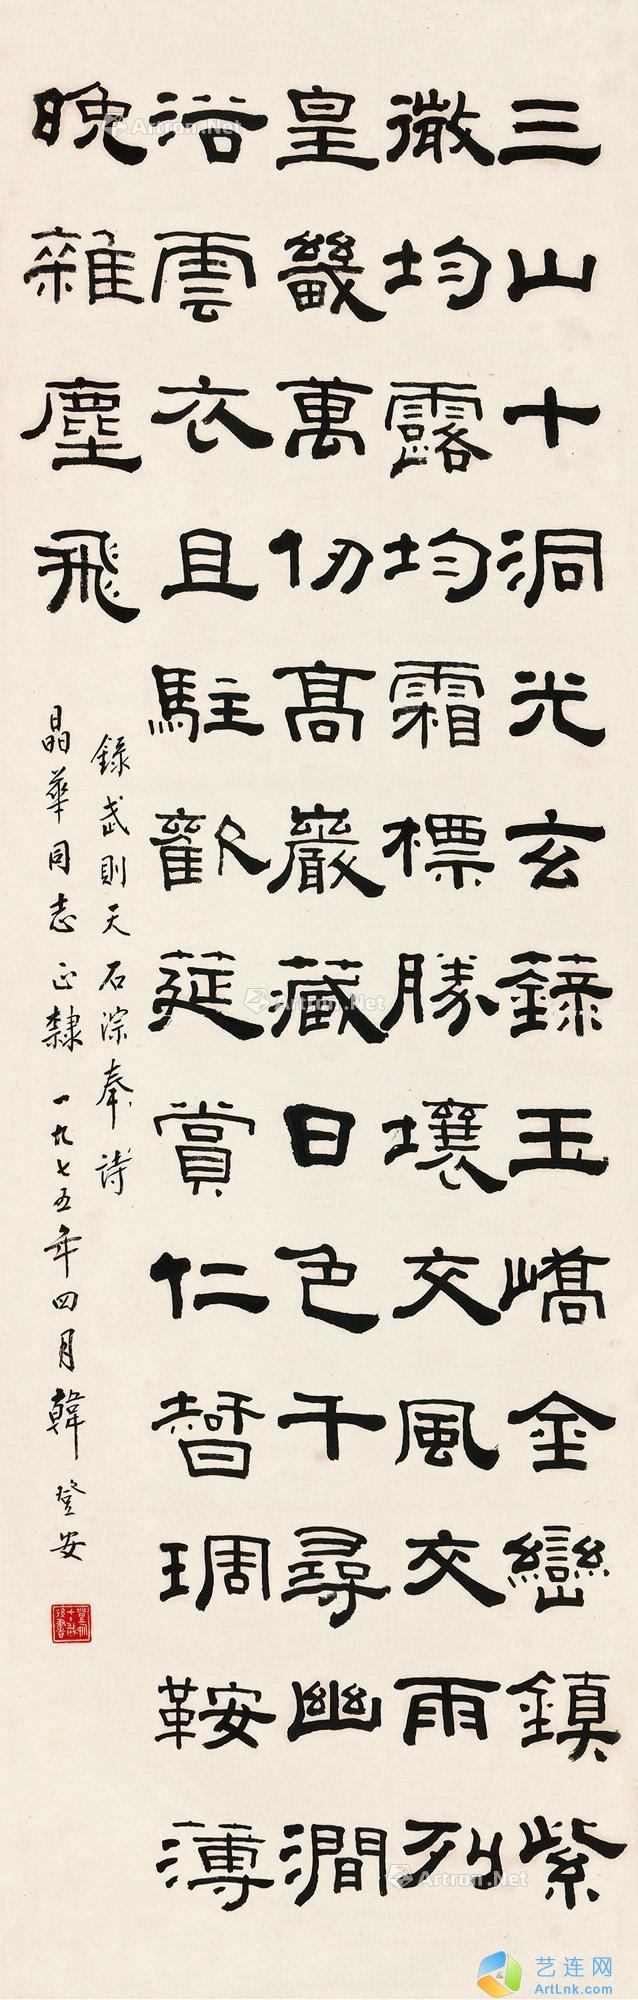 三山十洞光玄籙玉嶠金巒鎮紫
微均露均霜標勝壤交風交雨列
皇畿萬仞高巖藏日色千尋幽澗
浴雲衣且駐歡筵賞仁智琱鞍薄
晚雜塵飛
錄武則天石淙奉詩
晶華同志正隸 一九七五年四月韓登安
Artron.Net
Artron.Net
Artron.Net
艺连网
ArtLnk.com